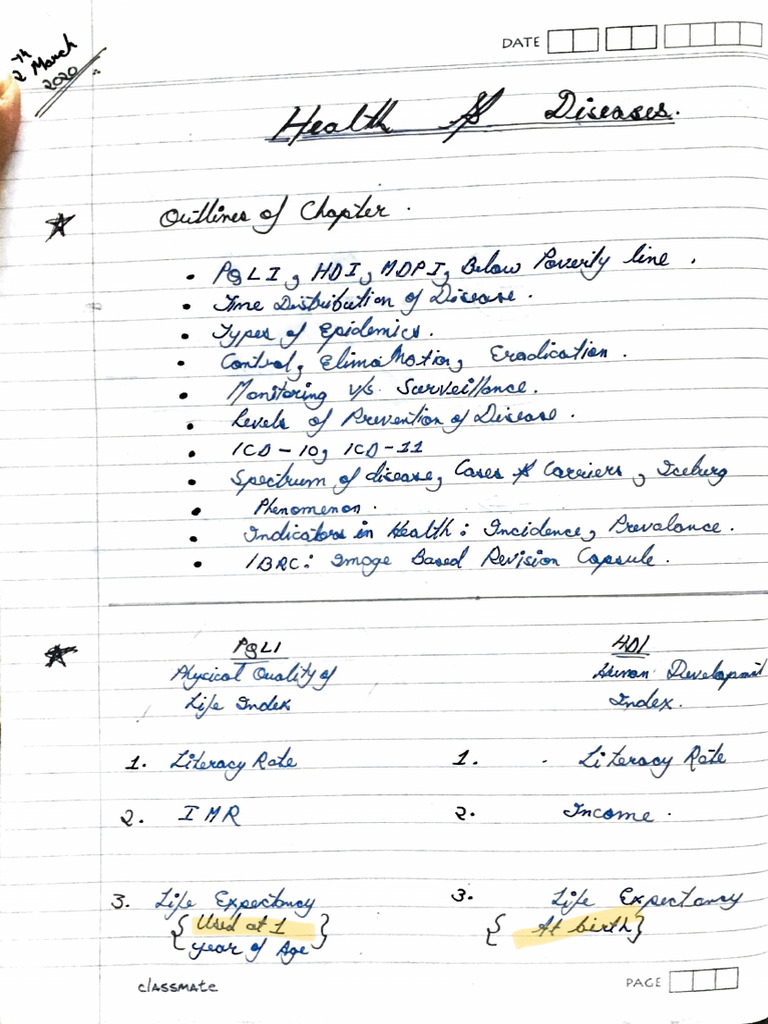 DATE
2th March
2020
Health & Diseases.
Outlines of Chapter.
• PQLI, HDI, MDPI, Below Poverity line.
• Time Distribution of Disease.
• Types of Epidemics.
• Control, Elimination, Eradication.
• Monitoring v/s. Surveillance.
• Levels of Prevention of Disease.
• ICD-10, ICD-11
• Spectrum of disease, Cases & Carriers, Iceburg
• Phenomenon.
• Indicators in Health: Incidence, Prevalance.
• IBRC: Image Based Revision Capsule.
PQLI HDI
Physical Quality of Human Development
Life Index Index.
1. Literacy Rate 1. Literacy Rate
2. IMR 2. Income.
3. Life Expectancy 3. Life Expectancy
{Used at 1 {At birth}
year of Age}
classmate PAGE